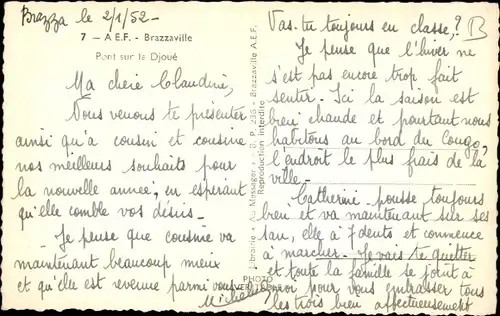 Brazza le 2/1/52 -
7 — A.E.F. - Brazzaville
Pont sur la Djoué
Ma chère Claudine,
Nous venons te présenter
ainsi qu'à cousin et cousine
nos meilleurs souhaits pour
la nouvelle année, en espérant
qu'elle comble vos désirs -
- Je pense que cousine va
maintenant beaucoup mieux
et qu'elle est revenue parmi vous
Librairie " Au Messager " - U. P. 235 - Brazzaville A.E.F.
Reproduction interdite
PHOTO
Vas-tu toujours en classe ?
B
Je pense que l'hiver ne
s'est pas encore trop fait
sentir. Ici la saison est
bien chaude et pourtant nous
habitons au bord du Congo,
l'endroit le plus frais de la
ville -
Catherine pousse toujours
bien et va maintenant sur ses
1 an, elle a 7 dents et commence
à marcher. Je vais te quitter
et toute la famille se joint à
moi pour vous embrasser tous
les trois bien affectueusement
Micheline